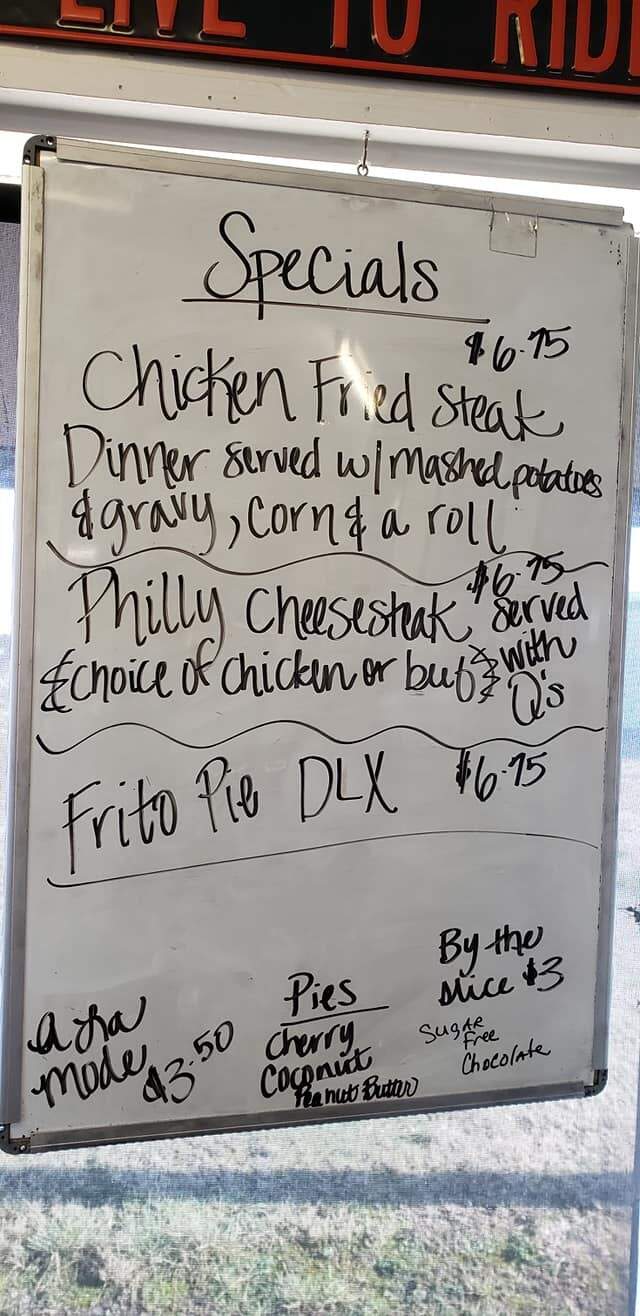 LIVE TO RIDE
Specials
$6.75
Chicken Fried Steak
Dinner served w/ Mashed potatoes
& gravy, corn & a roll
Philly Cheesesteak $6.75 served
& choice of chicken or beef with
Q's
Frito Pie DLX $6.75
By the
slice $3
Pies
Cherry
Coconut
Peanut Butter
Sugar
Free
Chocolate
a la
mode $3.50